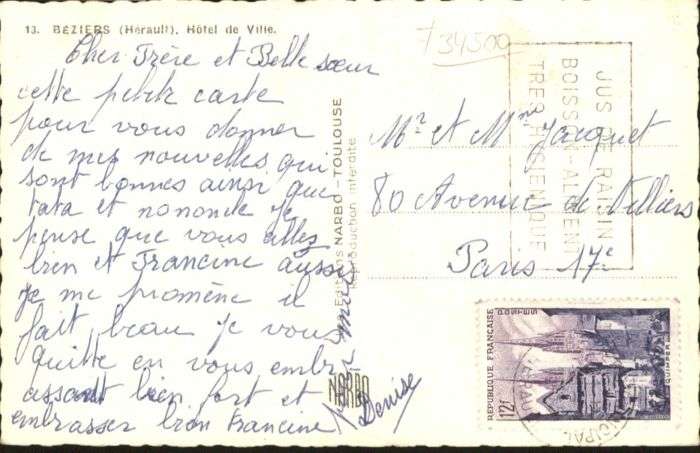 13. BÉZIERS (Hérault). Hôtel de Ville.
Cher Frère et Belle sœur
cette petite carte
pour vous donner
de mes nouvelles qui
sont bonnes ainsi que
tata et nononcle je
pense que vous allez
bien et Francine aussi
je me promène il
fait beau je vous
quitte en vous embr
assant bien fort et
embrasser bien Francine
Denise
Editions NARBO - TOULOUSE
Reproduction interdite
NARBO
734500
JUS DE RAISIN
BOISSON-ALIMENT
TRES HYGIENIQUE
Mr et Mme Jacquet
80 Avenue de Villiers
Paris 17e
POSTES
REPUBLIQUE FRANÇAISE
QUIMPER
12f